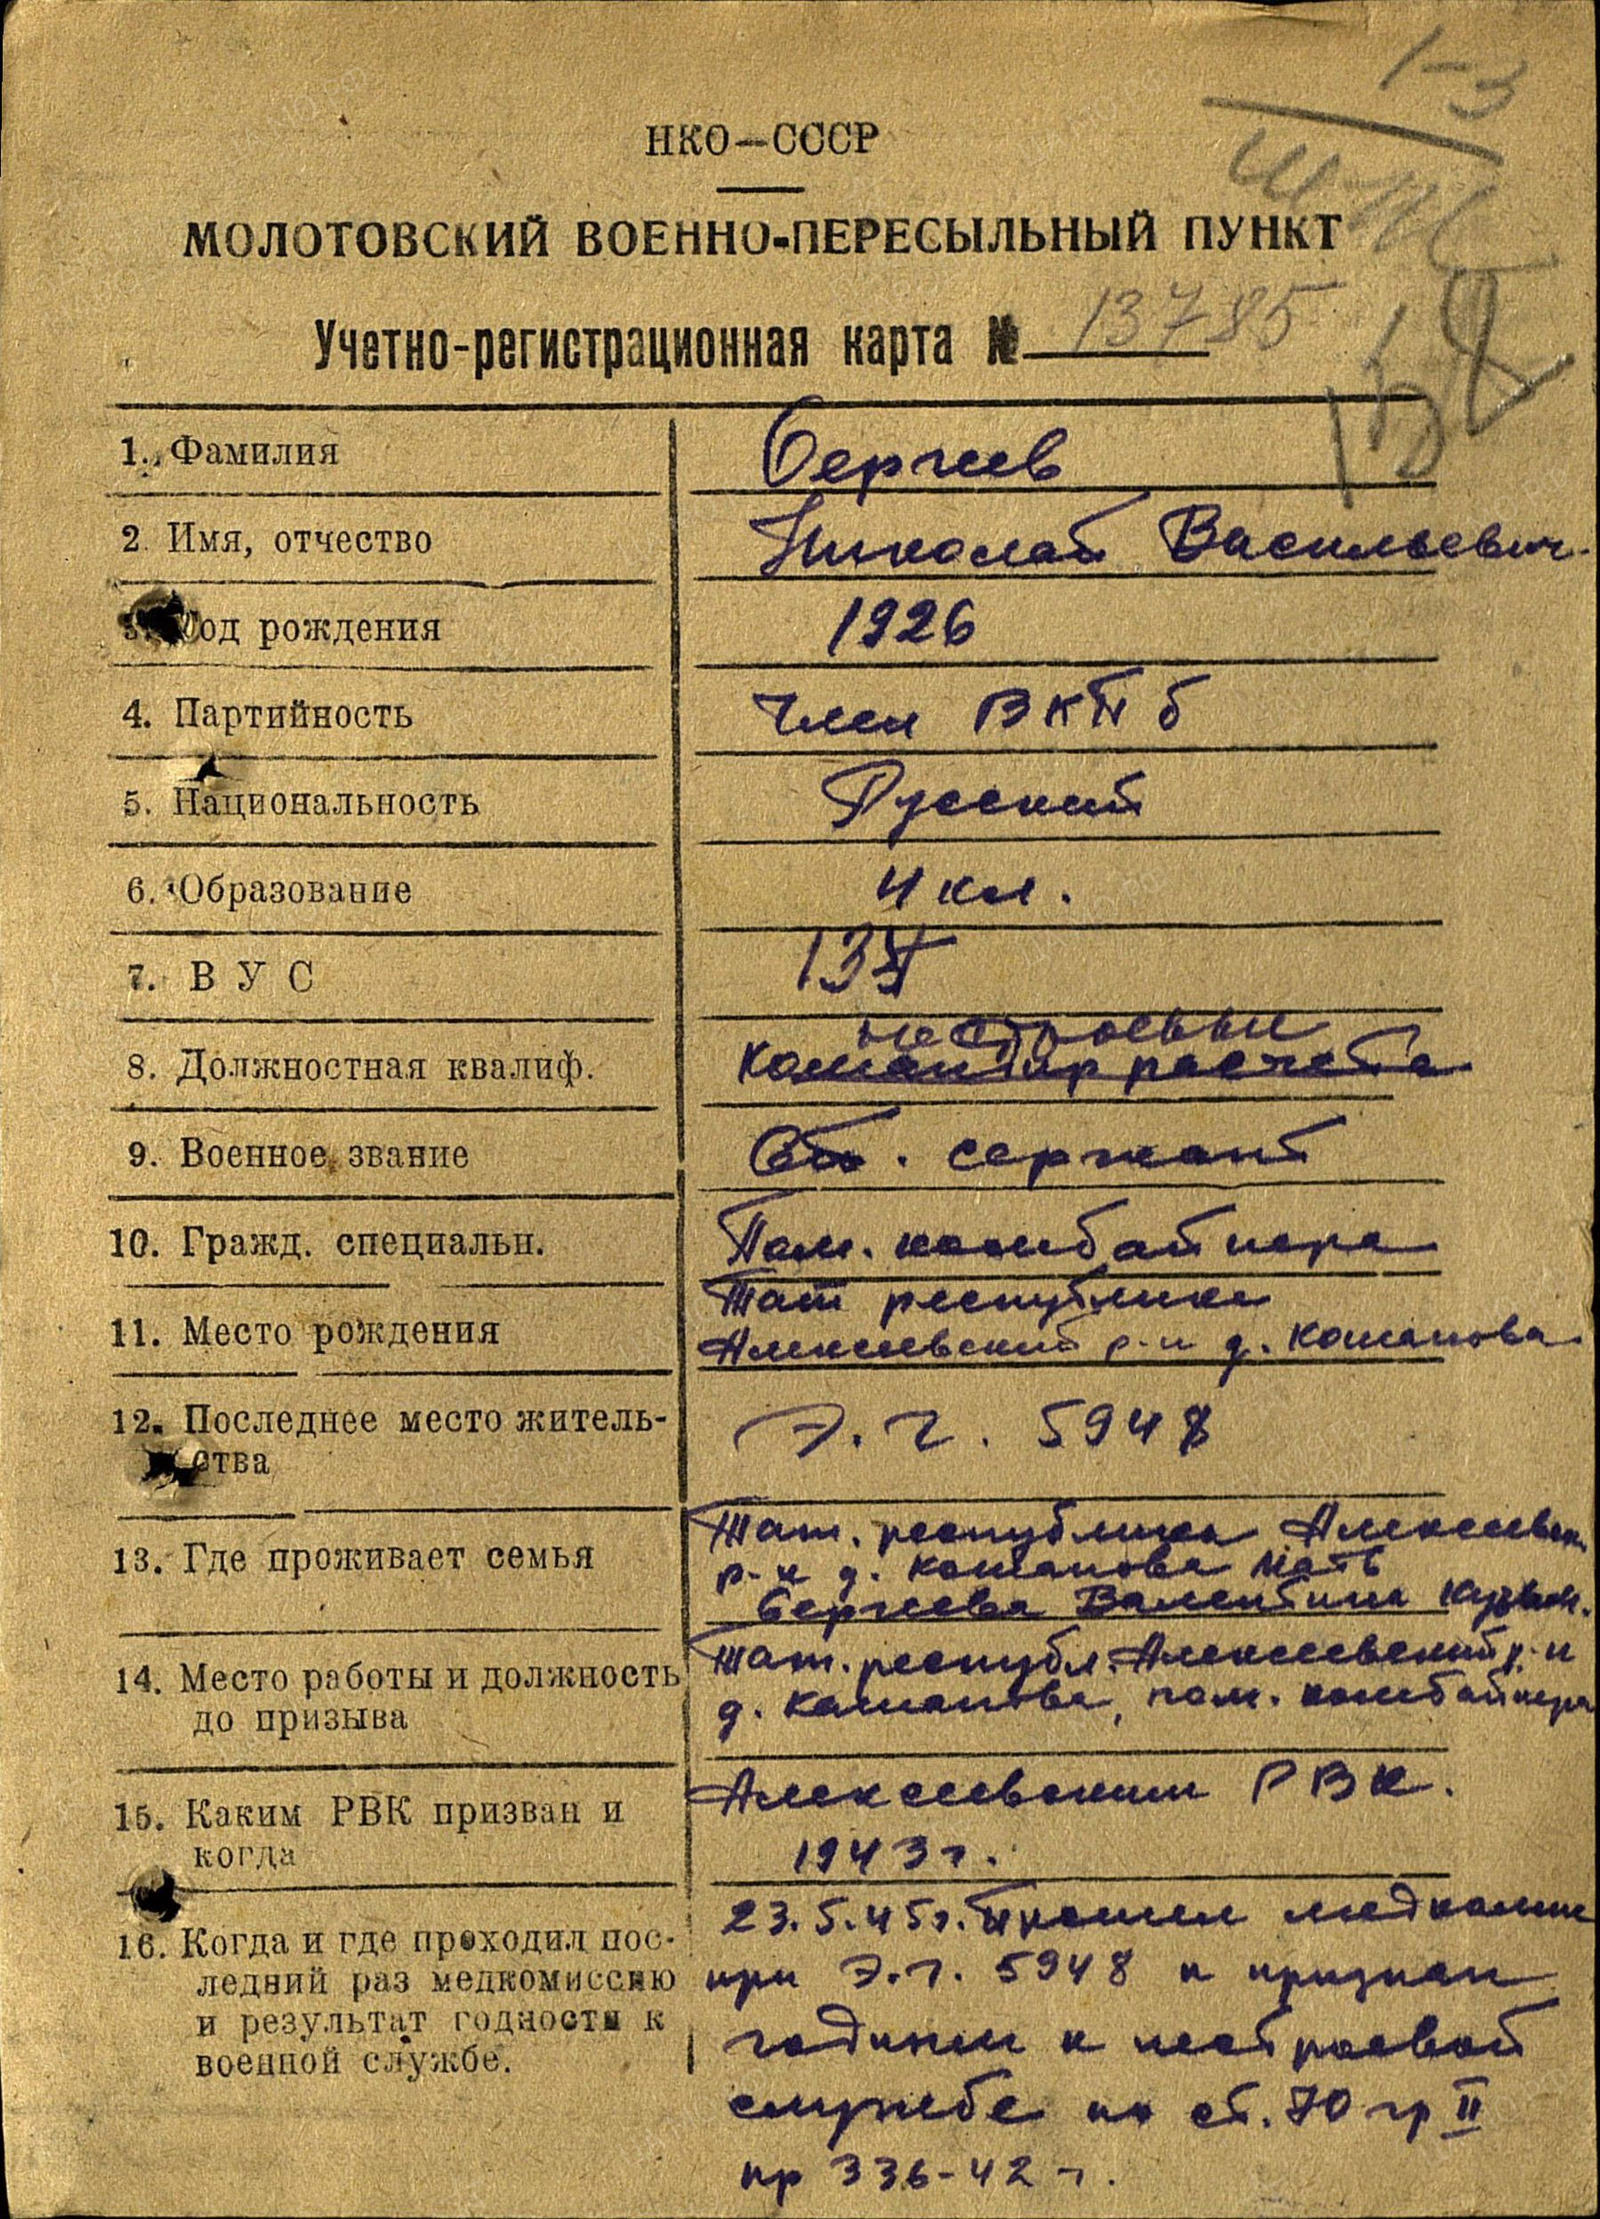 1-3
НКО—СССР
МОЛОТОВСКИЙ ВОЕННО-ПЕРЕСЫЛЬНЫЙ ПУНКТ
Учетно-регистрационная карта № 13785
1. Фамилия Сергеев
2. Имя, отчество Николай Васильевич
3. Год рождения 1926
4. Партийность Член ВКП б
5. Национальность Русский
6. Образование 4 кл.
7. В У С 13
нестроевые
8. Должностная квалиф. командир расчета
9. Военное звание Ст. сержант
10. Гражд. специальн. Пом. комбайнера
Тат республика
11. Место рождения Алексеевский р-н д.
12. Последнее место житель-
ства Э. Г. 5948
Тат. республика Алексеевск
13. Где проживает семья р-н д. мать
Сергеева Валентина
14. Место работы и должность Тат. республ. Алексеевский р-н
до призыва д. пом. комбайнера
15. Каким РВК призван и Алексеевским РВК.
когда 1943 г.
16. Когда и где проходил пос- 23.5.45 г. Прошел медкомис
ледний раз медкомиссию при Э.Г. 5948 и признан
и результат годности к годным к нестроевой
военной службе. службе по ст. 70 гр II
пр 336-42 г.